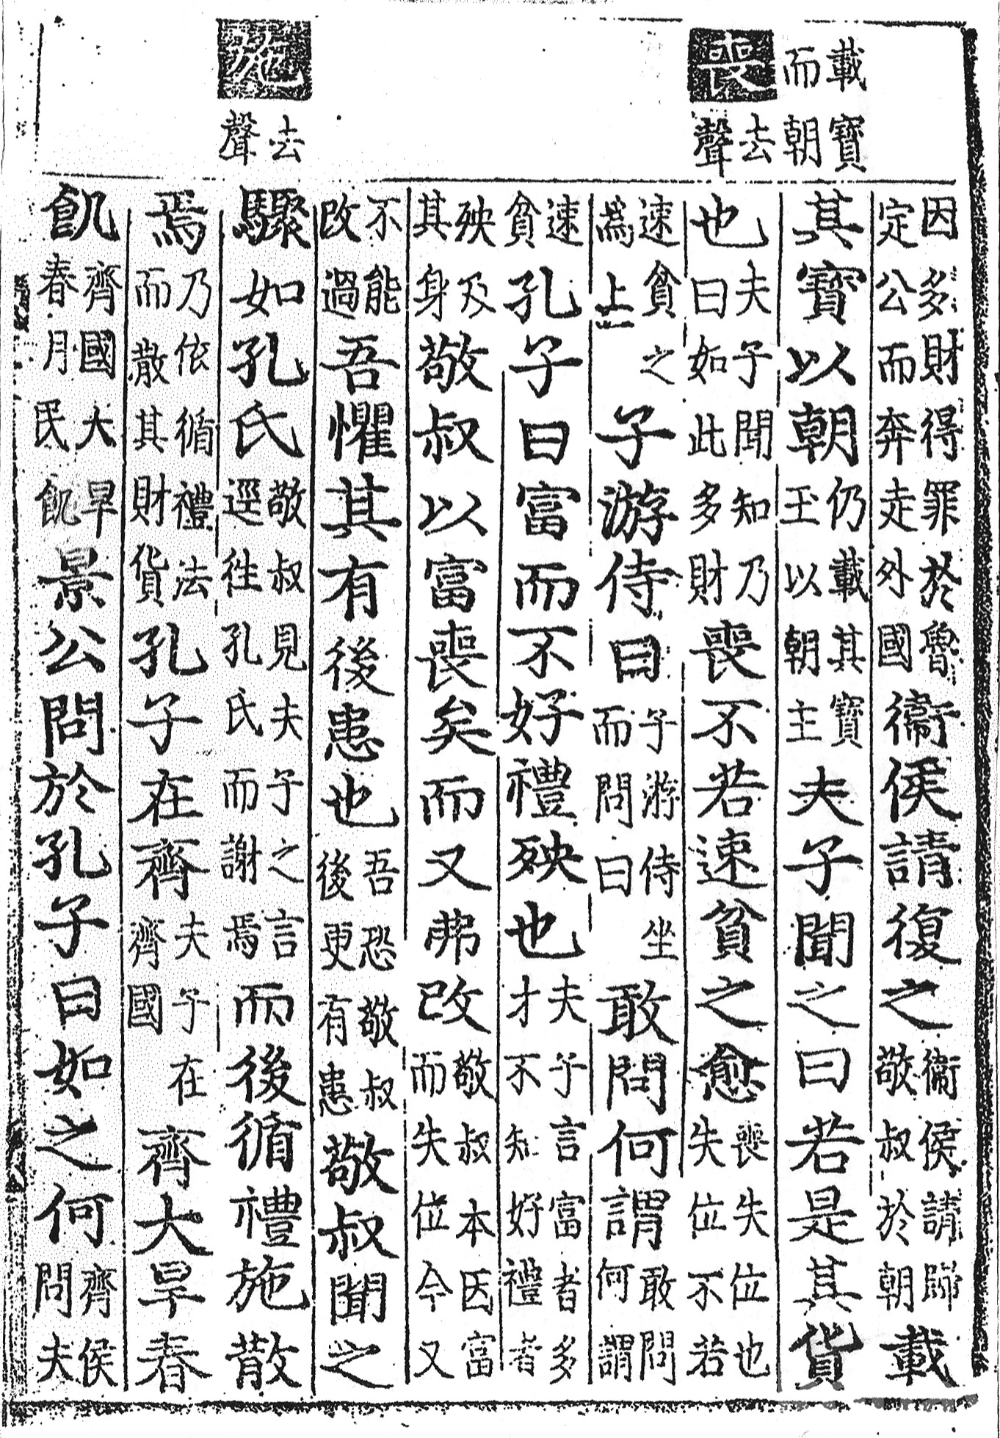 載寶
而朝
喪去聲
施去聲
因多財得罪於魯定公而奔走外國衞侯請復之衞侯請歸敬叔於朝載
其寶以朝仍載其寶玉以朝主夫子聞之曰若是其貨
也夫子聞知乃曰如此多財喪不若速貧之愈喪失位也失位不若
速貧之爲上子游侍曰子游侍坐而問曰敢問何謂敢問何謂
速貧孔子曰富而不好禮殃也夫子言富者多才不知好禮者
殃及其身敬叔以富喪矣而又弗改敬叔本因富而失位今又
不能改過吾懼其有後患也吾恐敬叔後更有患敬叔聞之
驟如孔氏敬叔見夫子之言逕往孔氏而謝焉而後循禮施散
焉乃依循禮法而散其財貨孔子在齊夫子在齊國齊大旱春
飢齊國大旱春月民飢景公問於孔子曰如之何齊侯問夫